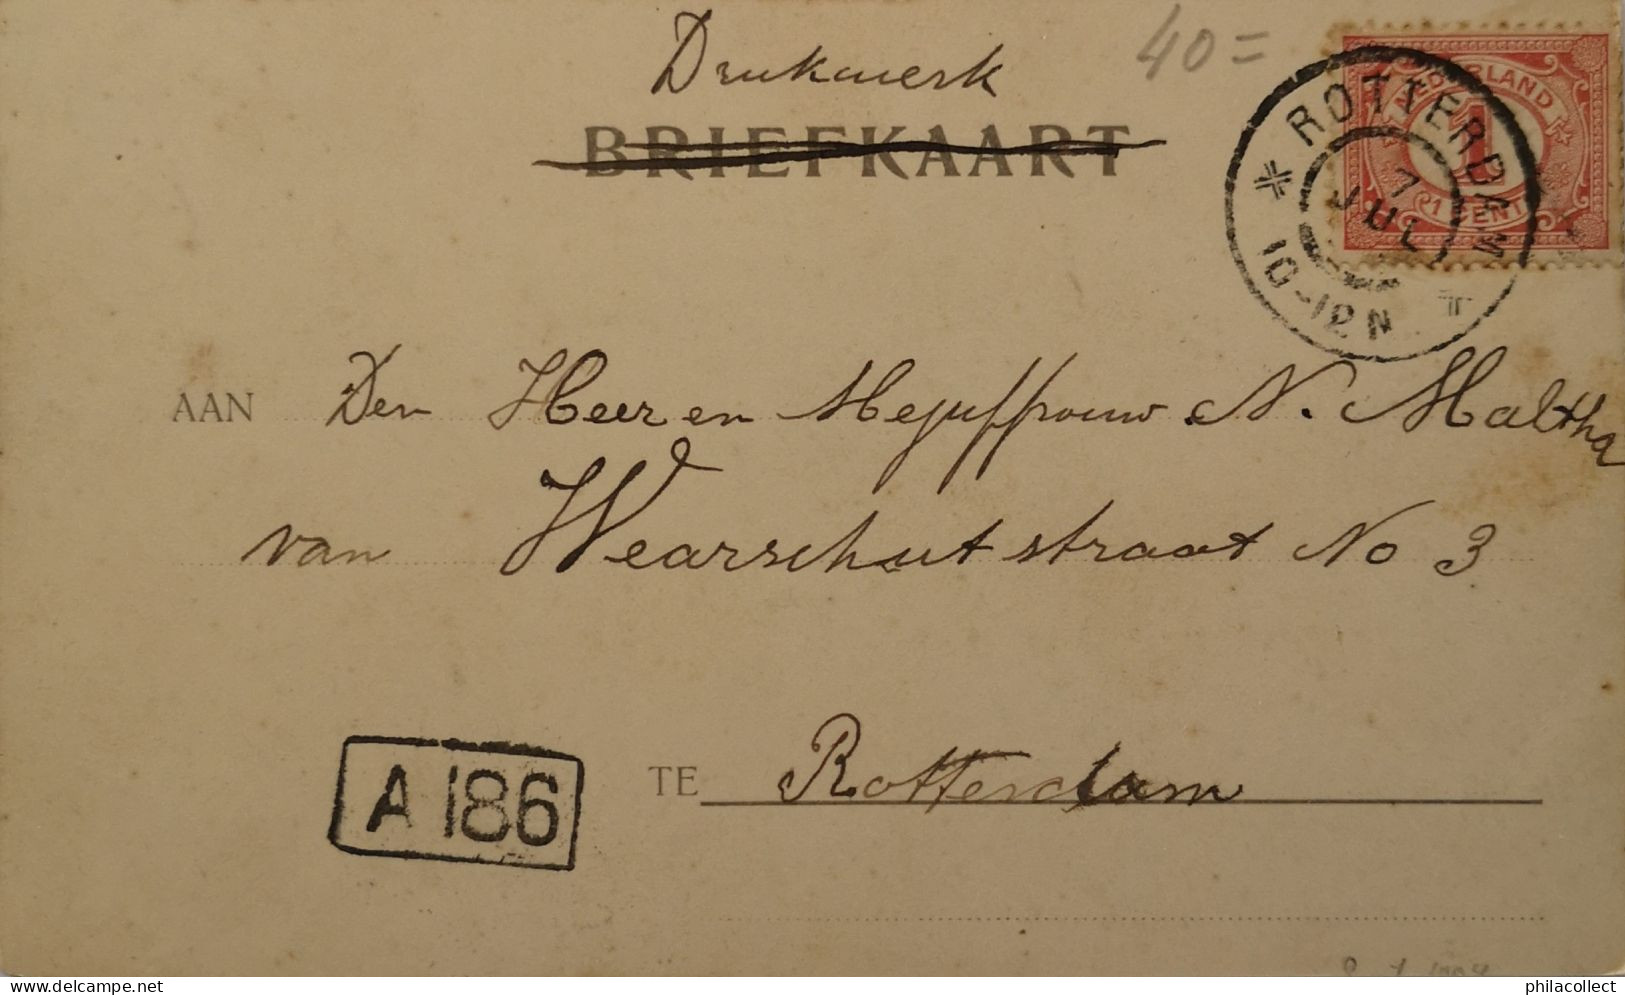 Drukwerk
40=
BRIEFKAART
NEDERLAND
1
1 CENT
ROTTERDAM
7
JUL
10-12N
AAN Den Heer en Mejuffrouw N. Maltha
van Wearschutstraat No 3
A 186
TE Rotterdam
philacollect